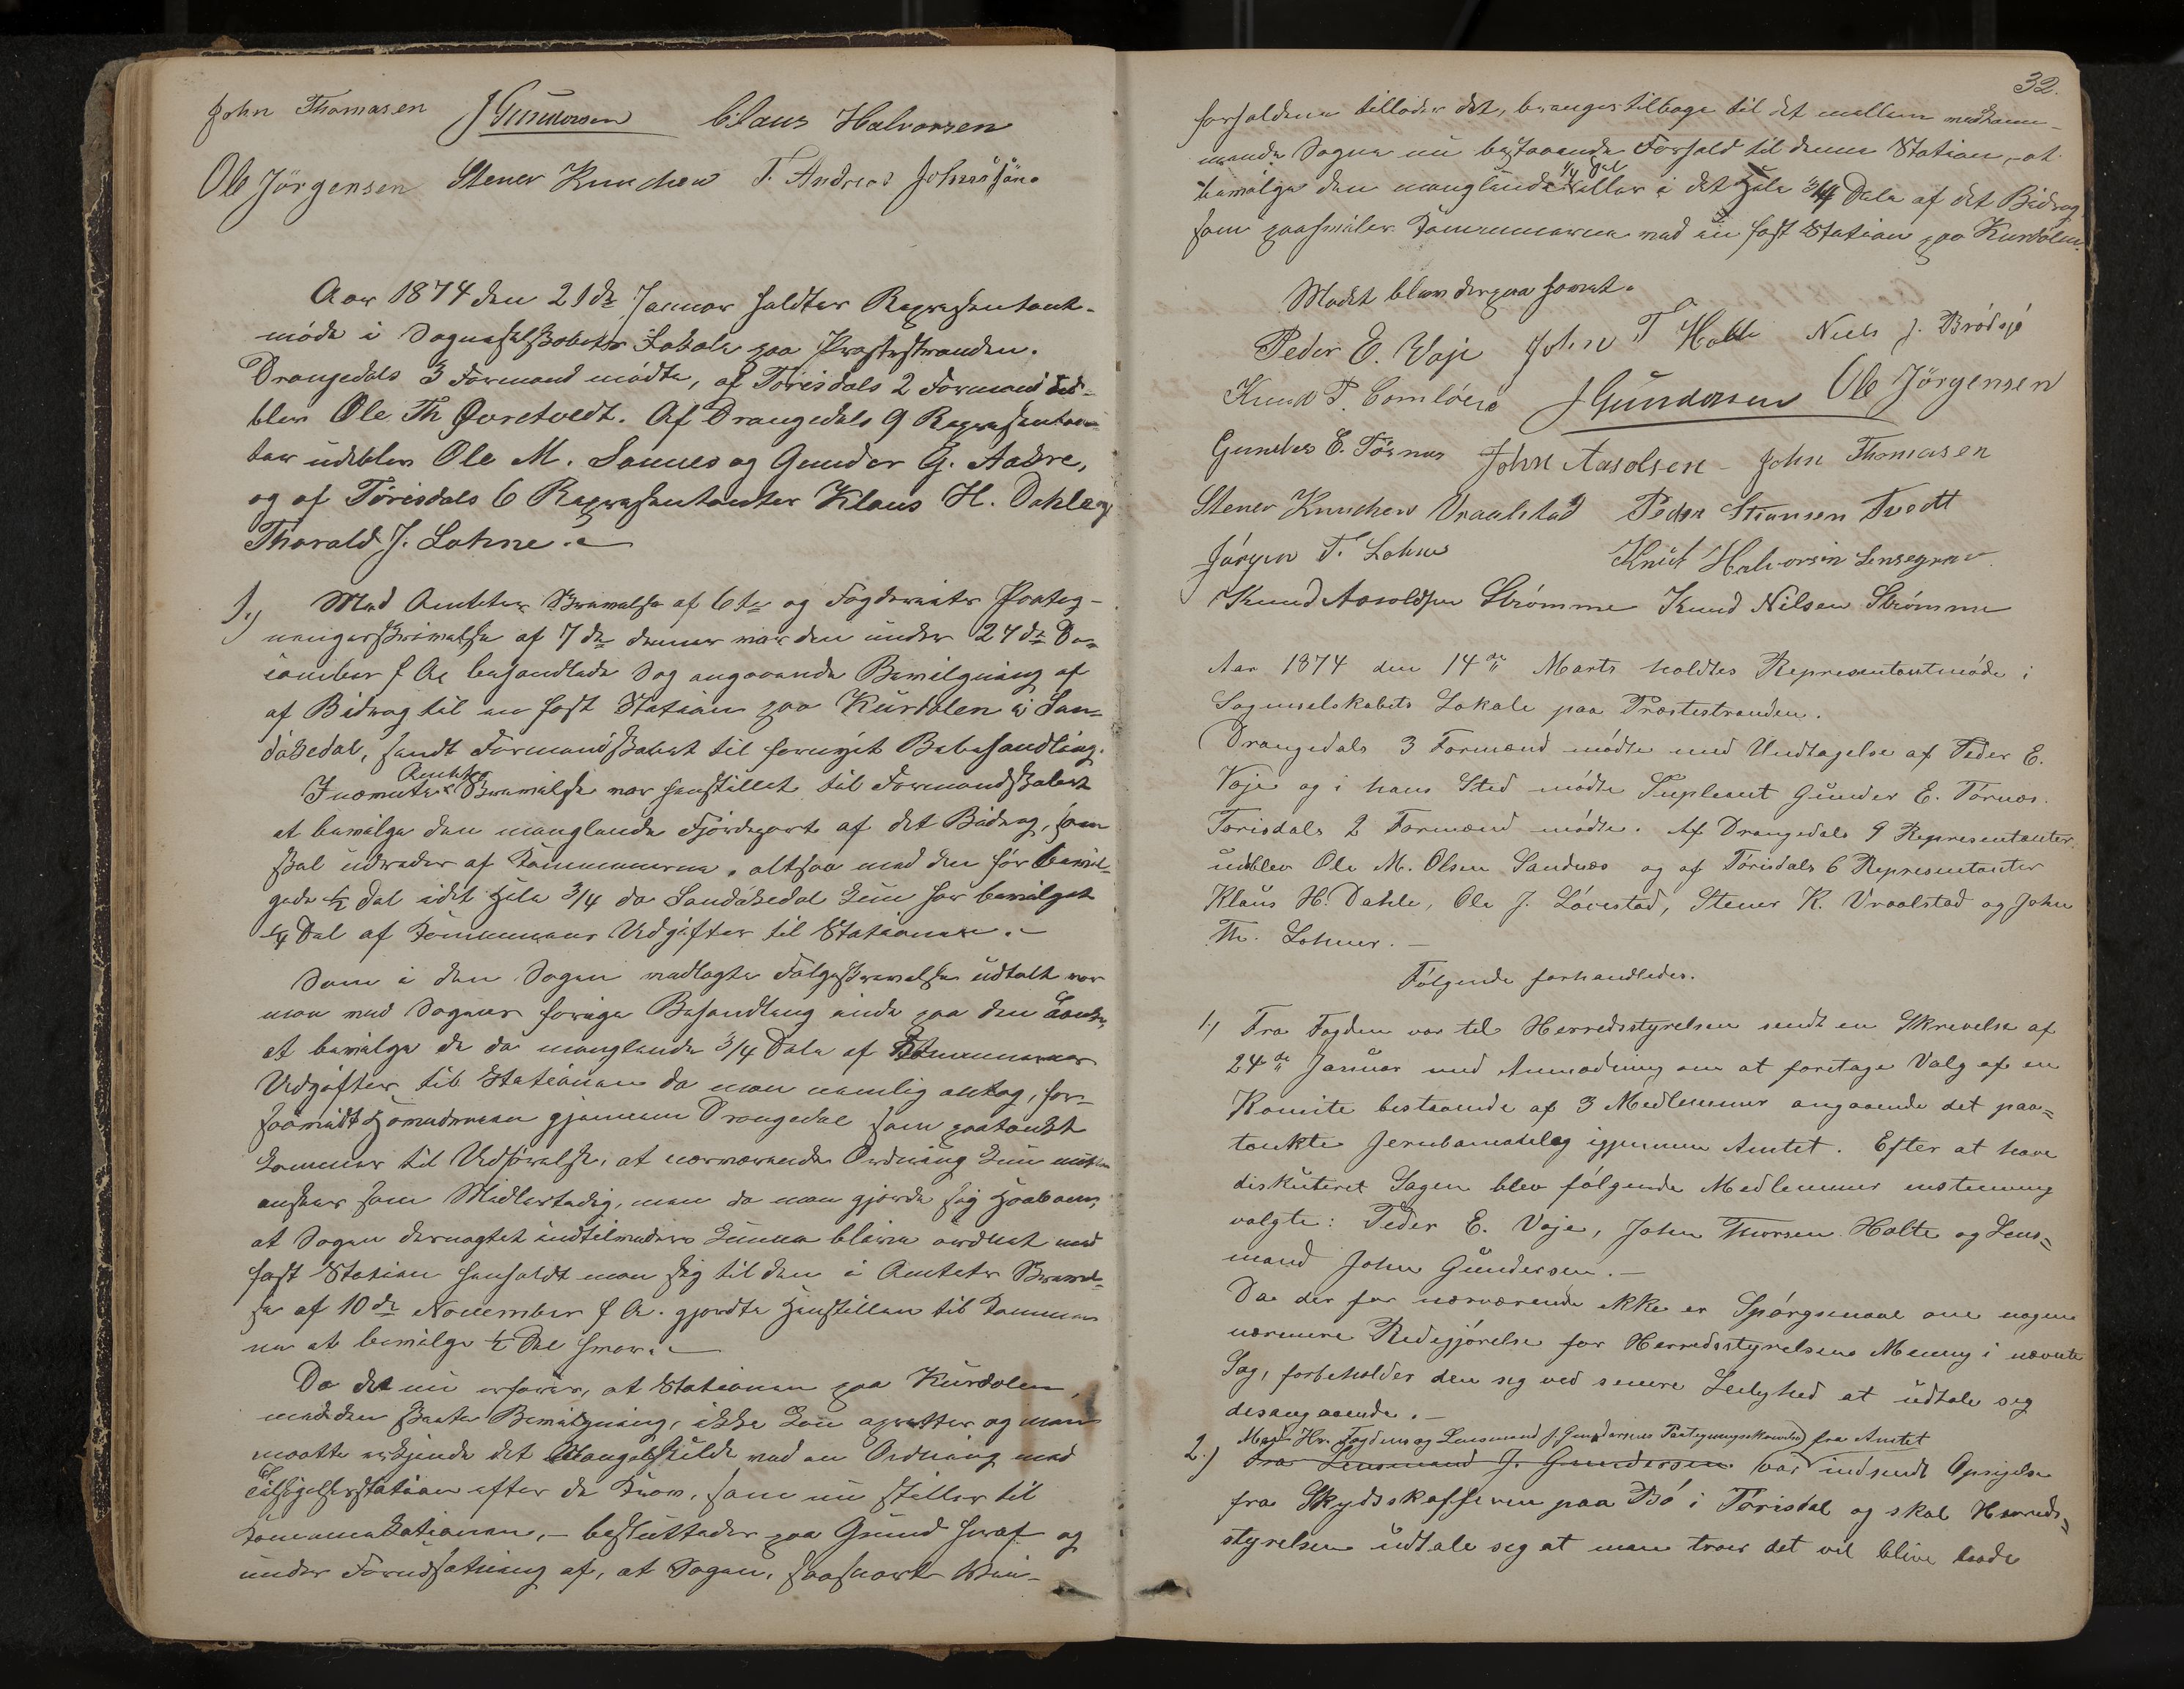 John Thomasen J Gundersen Claus Halvorsen
Ole Jörgensen Stener Knudsen T. Andreas Johnsösön.
Aar 1874 den 21de Januar holdtes Repræsentant-
møde i Sogneselskabets Lokale paa Præstestranden.
Drangedals 3 Formænd mødte, af Tørisdals 2 Formænd ude-
blev Ole Th Øvretvedt. Af Drangedals 9 Repræsentan-
ter udeblev Ole M. Sannes og Gunder G. Aakre,
og af Tørisdals 6 Repræsentanter Klaus H. Dahle og
Thorald J. Lohne.
1.) Med Amtets Skrivelse af 6te og Fogderiets Paateg-
ningsskrivelse af 7de dennes var den under 27de De-
cember f Aar behandlede Sag angaaende Bevilgning af
af Bidrag til en fast Station paa Kurdølen i San-
døkedal, sendt Formandskabet til fornyet Behandling.
I nævnte Amts Skrivelse var henstillet til Formandskabet
at bevilge den manglende Fjerdepart af det Bidrag, som
skal udredes af Kommunerne, altsaa med den før bevil-
gede ½ Del i det Hele 3/4 da Sandøkedal kun har bevilget
¼ Del af Kommunens Udgifter til Stationen.
Som i den Sagen vedlagte Følgeskrivelse udtalt var
man ved Sagens forrige Behandling inde paa den Tanke,
at bevilge de da manglende 3/4 Dele af Kommunernes
Udgifter til Stationen da man nemlig antog, for-
saavidt Hovedveien gjennem Drangedal som paatænkt
kommer til Udførelse, at nærværende Ordning kun maatte
ansees som Midlertidig, men da man gjorde sig Haab om,
at Sagen dernagtet indtilvidere kunne blive ordnet med
fast Station henholdt man sig til den i Amtets Skrivel-
se af 10de November f A. gjordte Henstillen til Kommu-
nen at bevilge ½ Del heraf.
Da det nu erfares, at Stationen paa Kurdølen,
med den skeete Bevilgning, ikke kan oprettes og man
maatte erkjende det Mangelfulde ved en Ordning med
Tilsigelsesstation efter de Krav, som nu stilles til
Kommunikationen, – besluttedes paa Grund heraf og
under Forudsætning af, at Sagen, saasnart Vei-
32.
forholdene tillader det, bringes tilbage til det mellem vedkom-
mende Sogne nu bestaaende Forhold til denne Station, at
bevilge den manglende 1/4 Del eller i det Hele 3/4 Dele af det Bidrag
som paahviler Kommunerne ved en fast Station paa Kurdølen.
Mødet blev derpaa hævet.
Peder E. Voje John T Holte Niels J. Brødsjø
Knud P. Gomløes J Gundersen Ole Jörgensen
Gunder E. Tørnes John Aasolsen – John Thomasen
Stener Knudsen Vraalstad Peder Stiansen Tvedt
Jørgen T. Lohne Knut Halvorsin
Knud Aavoldsen Strömme Knud Nilsen Strömme
Aar 1874 den 14de Marts holdtes Representantmøde i
Sogneselskabets Lokale paa Præstestranden.
Drangedals 3 Formænd mødte med Undtagelse af Peder E.
Voje og i hans Sted mødte Supleant Gunder E. Tørnæs.
Tørisdals 2 Formænd mødte. Af Drangedals 9 Representanter
udeblev Ole M. Olsen Sandnæs og af Tørisdals 6 Representanter
Klaus H. Dahle, Ole J. Løvestad, Stener K. Vraalstad og John
Th. Lohner. –
Følgende forhandledes.
1.) Fra Fogden var til Herredsstyrelsen sendt en Skrivelse af
24de Januar med Anmodning om at foretage Valg af en
Komite bestaaende af 3 Medlemmer angaaende det paa=
tænkte Jernbaneanlæg igjennem Amtet. Efter at have
diskuteret Sagen blev følgende Medlemmer enstemmig
valgte: Peder E. Voje, John Thorsen Holte og Lens=
mand John Gundersen. –
Da der for nærværende ikke er Spørgsmaal om nogen
nærmere Redegjørelse for Herredsstyrelsens Mening i nævnte
Sag, forbeholder den sig ved senere Leilighed at udtale sig
desangaaende. –
Med Hr. Fogdens og Lensmand J. Gundersens Paategningsskrivelse fra Amtet
2.) Fra Lensmand J. Gundersen var indsendt Opsigelse
fra Skydsskafferen paa Bø i Tørisdal og skal Herreds=
styrelsen udtale sig at man troer det vil blive baade